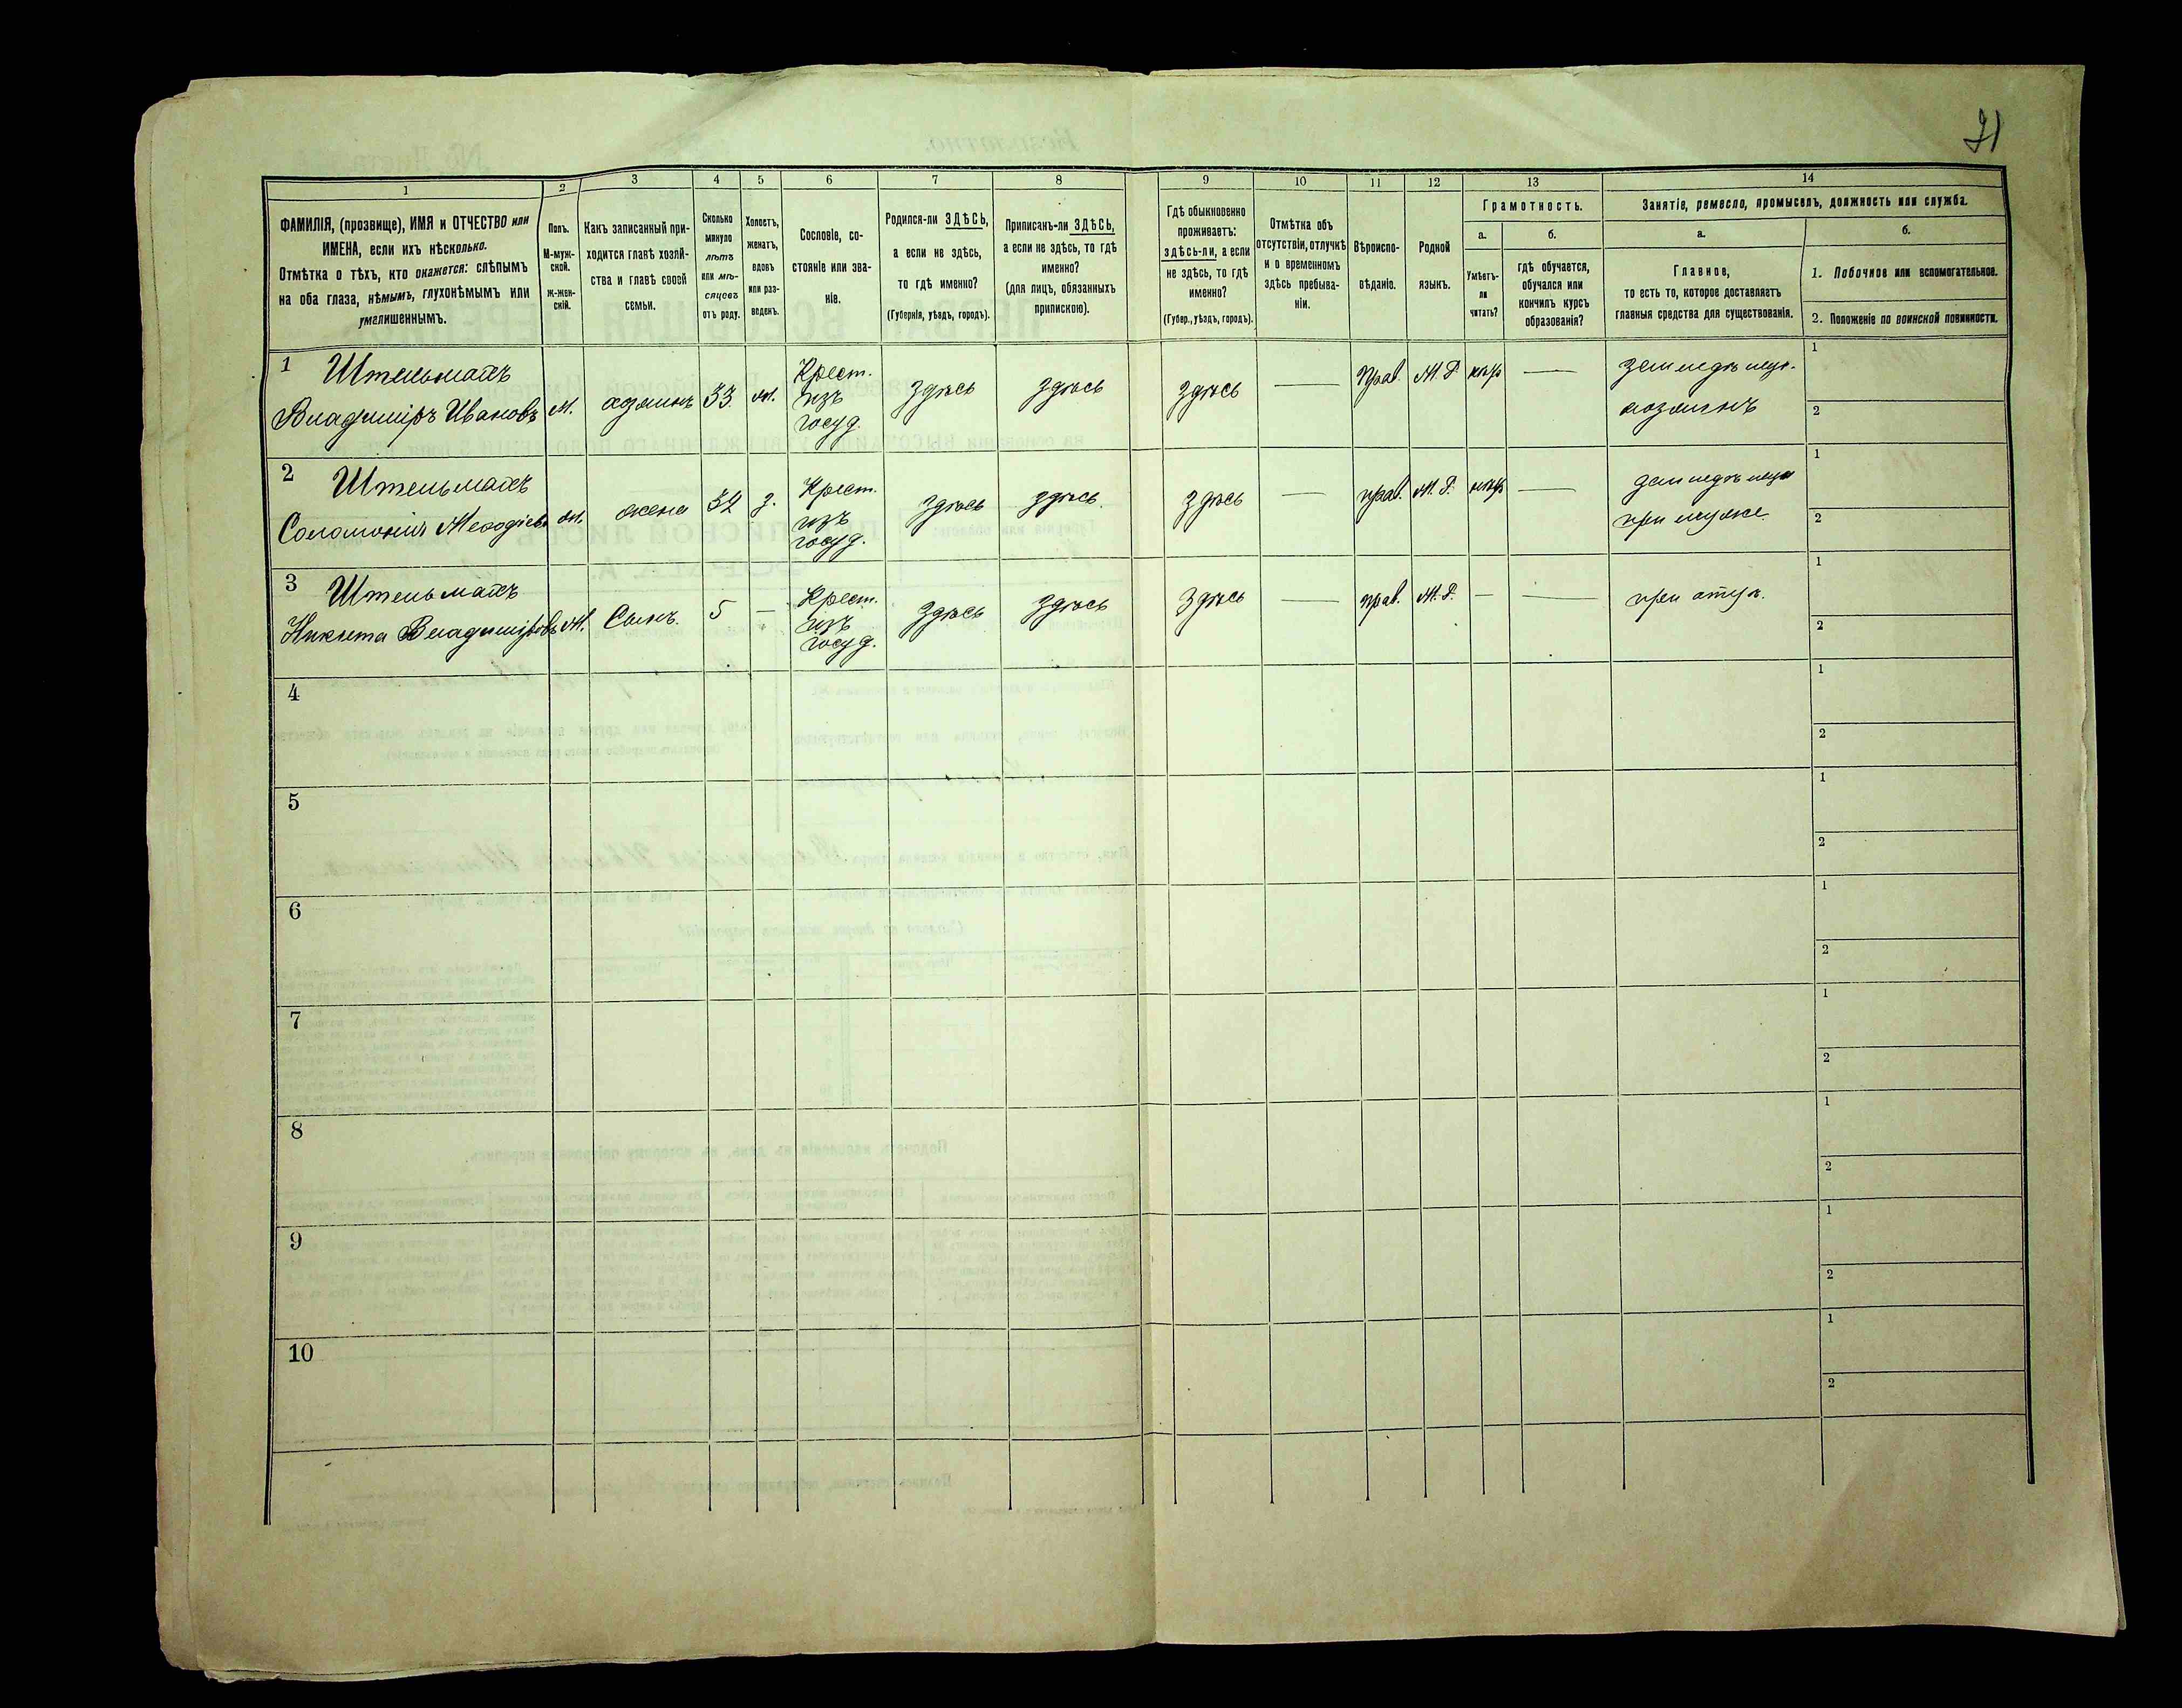 71
1 2 3 4 5 6 7 8 9 10 11 12 13 14
ФАМИЛІЯ, (прозвище), ИМЯ и ОТЧЕСТВО или
ИМЕНА, если ихъ нѣсколько.
Отмѣтка о тѣхъ, кто окажется: слѣпымъ
на оба глаза, нѣмымъ, глухонѣмымъ или
умалишеннымъ.
Полъ.
М-муж-
ской.
ж-жен-
скій.
Какъ записанный при-
ходится главѣ хозяй-
ства и главѣ своей
семьи.
Сколько
минуло
лѣтъ
или мѣ-
сяцевъ
отъ роду.
Холостъ,
женатъ,
вдовъ
или раз-
веденъ.
Сословіе, со-
стояніе или зва-
ніе.
Родился-ли ЗДѢСЬ,
а если не здѣсь,
то гдѣ именно?
(Губернія, уѣздъ, городъ).
Приписанъ-ли ЗДѢСЬ,
а если не здѣсь, то гдѣ
именно?
(для лицъ, обязанныхъ
припискою).
Гдѣ обыкновенно
проживаетъ:
здѣсь-ли, а если
не здѣсь, то гдѣ
именно?
(Губер., уѣздъ, городъ).
Отмѣтка объ
отсутствіи, отлучкѣ
и о временномъ
здѣсь пребыва-
ніи.
Вѣроиспо-
вѣданіе.
Родной
языкъ.
Грамотность.
а.
Умѣетъ-
ли
читать?
б.
гдѣ обучается,
обучался или
кончилъ курсъ
образованія?
Занятіе, ремесло, промыселъ, должность или служба.
а.
Главное,
то есть то, которое доставляетъ
главныя средства для существованія.
б.
1. Побочное или вспомогательное.
2. Положеніе по воинской повинности.
1 Штельмахъ
Владиміръ Ивановъ
М.
хозяинъ
33
ж.
Крест.
изъ
госуд.
здѣсь
здѣсь
здѣсь
—
Прав.
М. Р.
—
хозяинъ
1
2
2 Штельмахъ
Соломонія
ж.
жена
32
з.
Крест.
изъ
госуд.
здѣсь
здѣсь.
здѣсь
—
прав.
М. Р.
—
при мужѣ.
1
2
3 Штельмахъ
Никита Владиміровъ
М.
Сынъ.
5
—
Крест.
изъ
госуд.
здѣсь
здѣсь
здѣсь
—
прав.
М. Р.
—
—
при отцѣ.
1
2
4
1
2
5
1
2
6
1
2
7
1
2
8
1
2
9
1
2
10
1
2